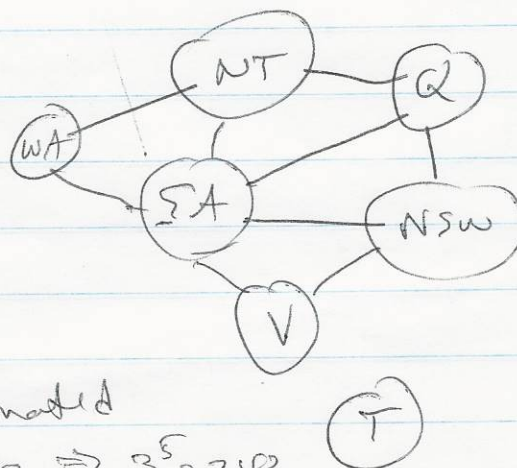 NT
Q
WA
SA
NSW
V
T
⇒ 3^5 =